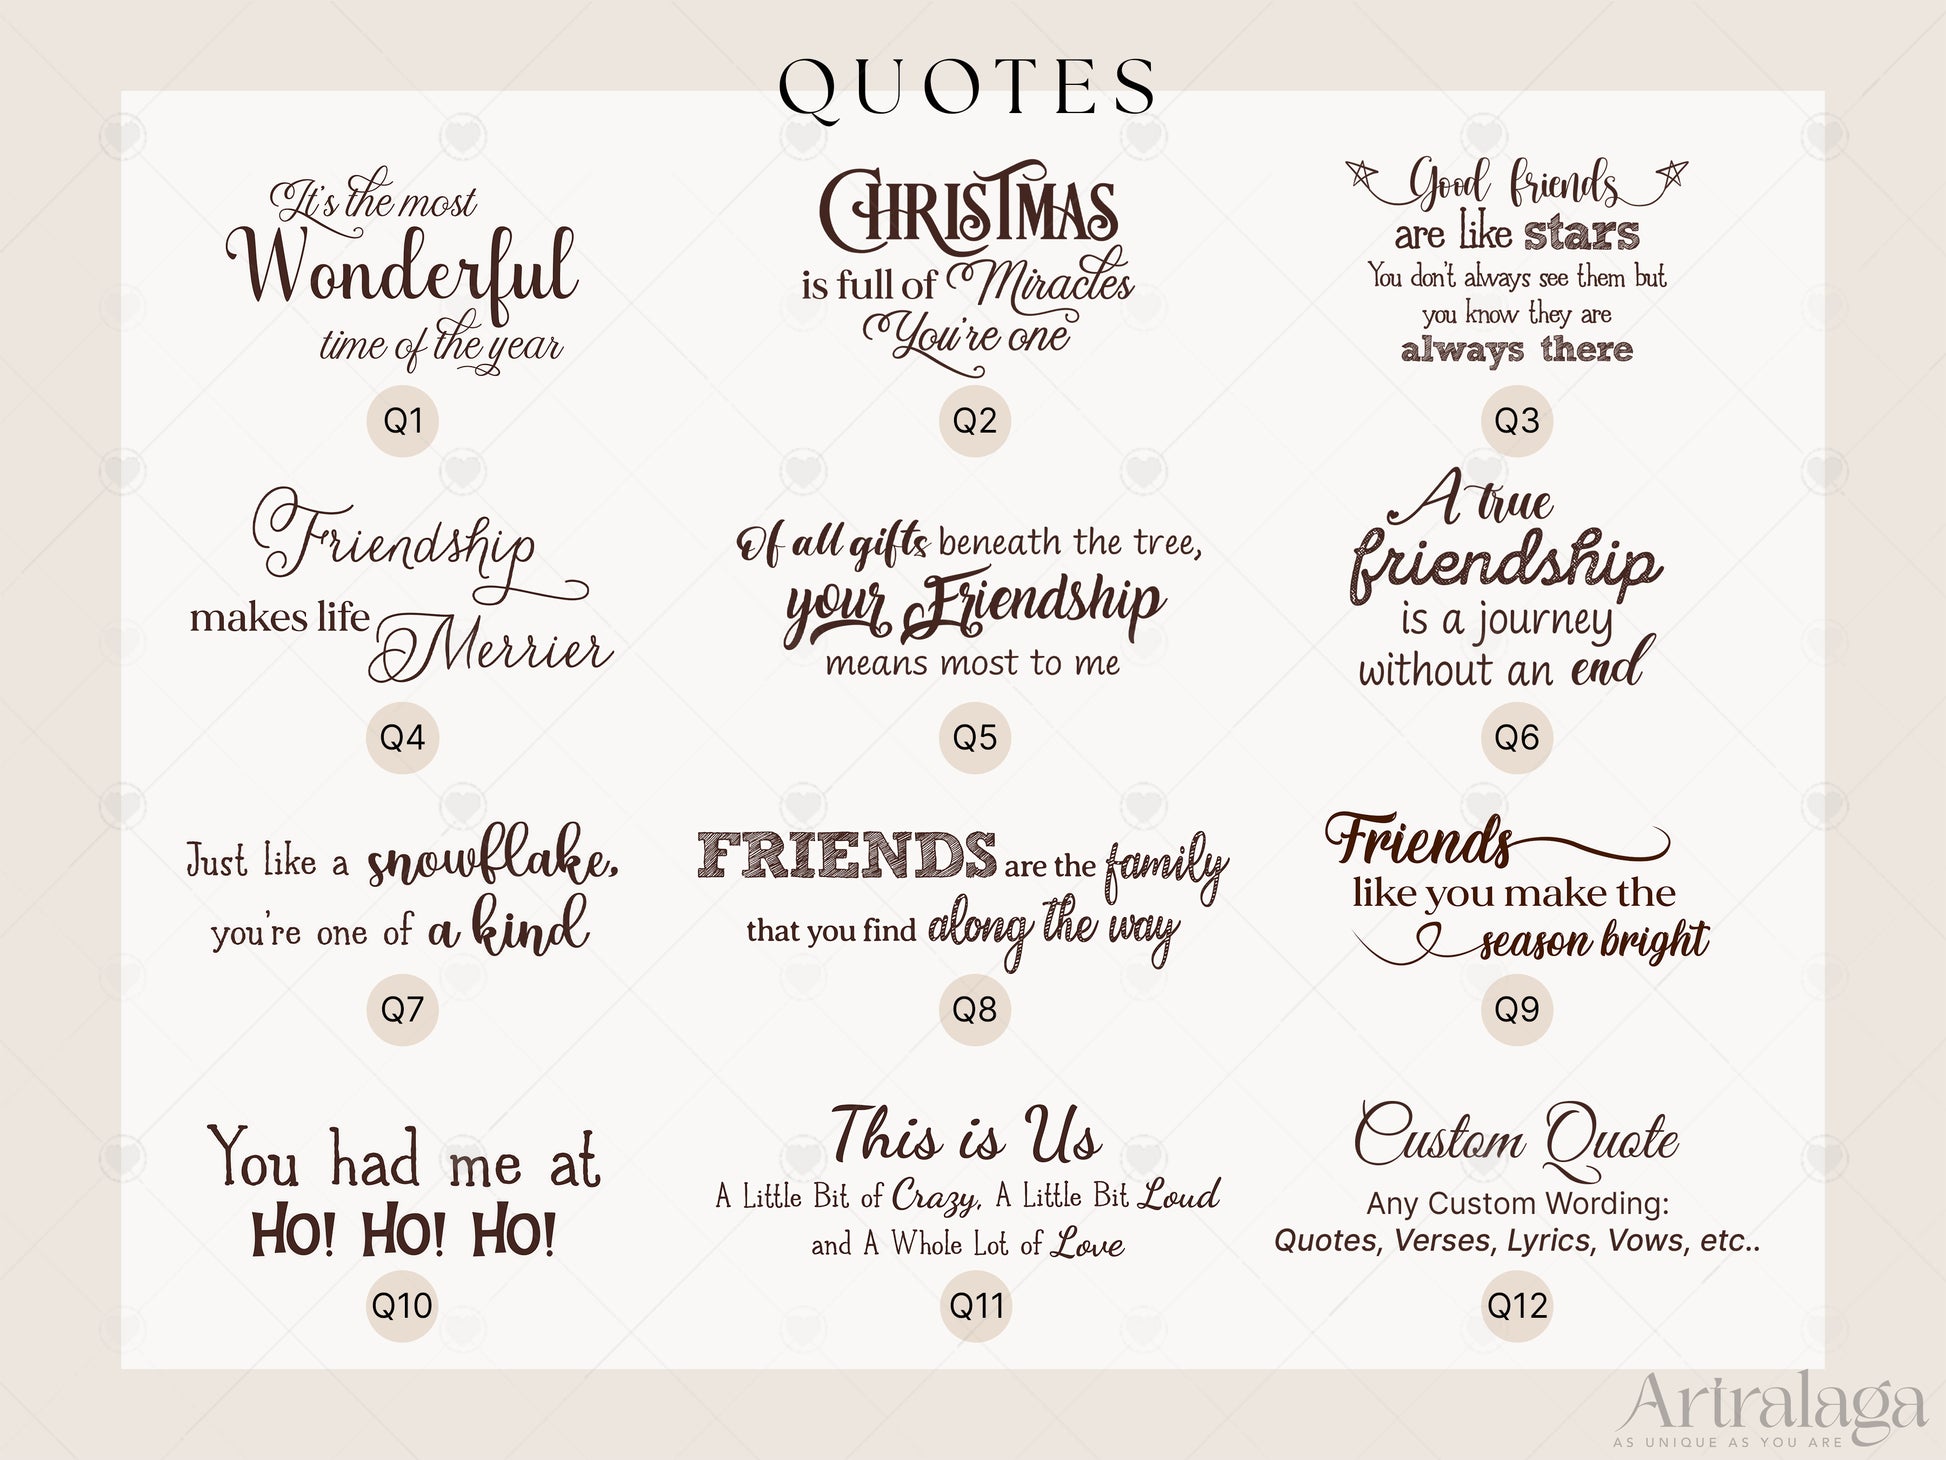 QUOTES
It's the most
Wonderful
time of the year
Q1
CHRISTMAS
is full of Miracles
You're one
Q2
Good friends
are like stars
You don't always see them but
you know they are
always there
Q3
Friendship
makes life Merrier
Q4
Of all gifts beneath the tree,
your Friendship
means most to me
Q5
A true
friendship
is a journey
without an end
Q6
Just like a snowflake,
you're one of a kind
Q7
FRIENDS are the family
that you find along the way
Q8
Friends
like you make the
season bright
Q9
You had me at
HO! HO! HO!
Q10
This is Us
A Little Bit of Crazy, A Little Bit Loud
and A Whole Lot of Love
Q11
Custom Quote
Any Custom Wording:
Quotes, Verses, Lyrics, Vows, etc..
Q12
Artralaga
AS UNIQUE AS YOU ARE